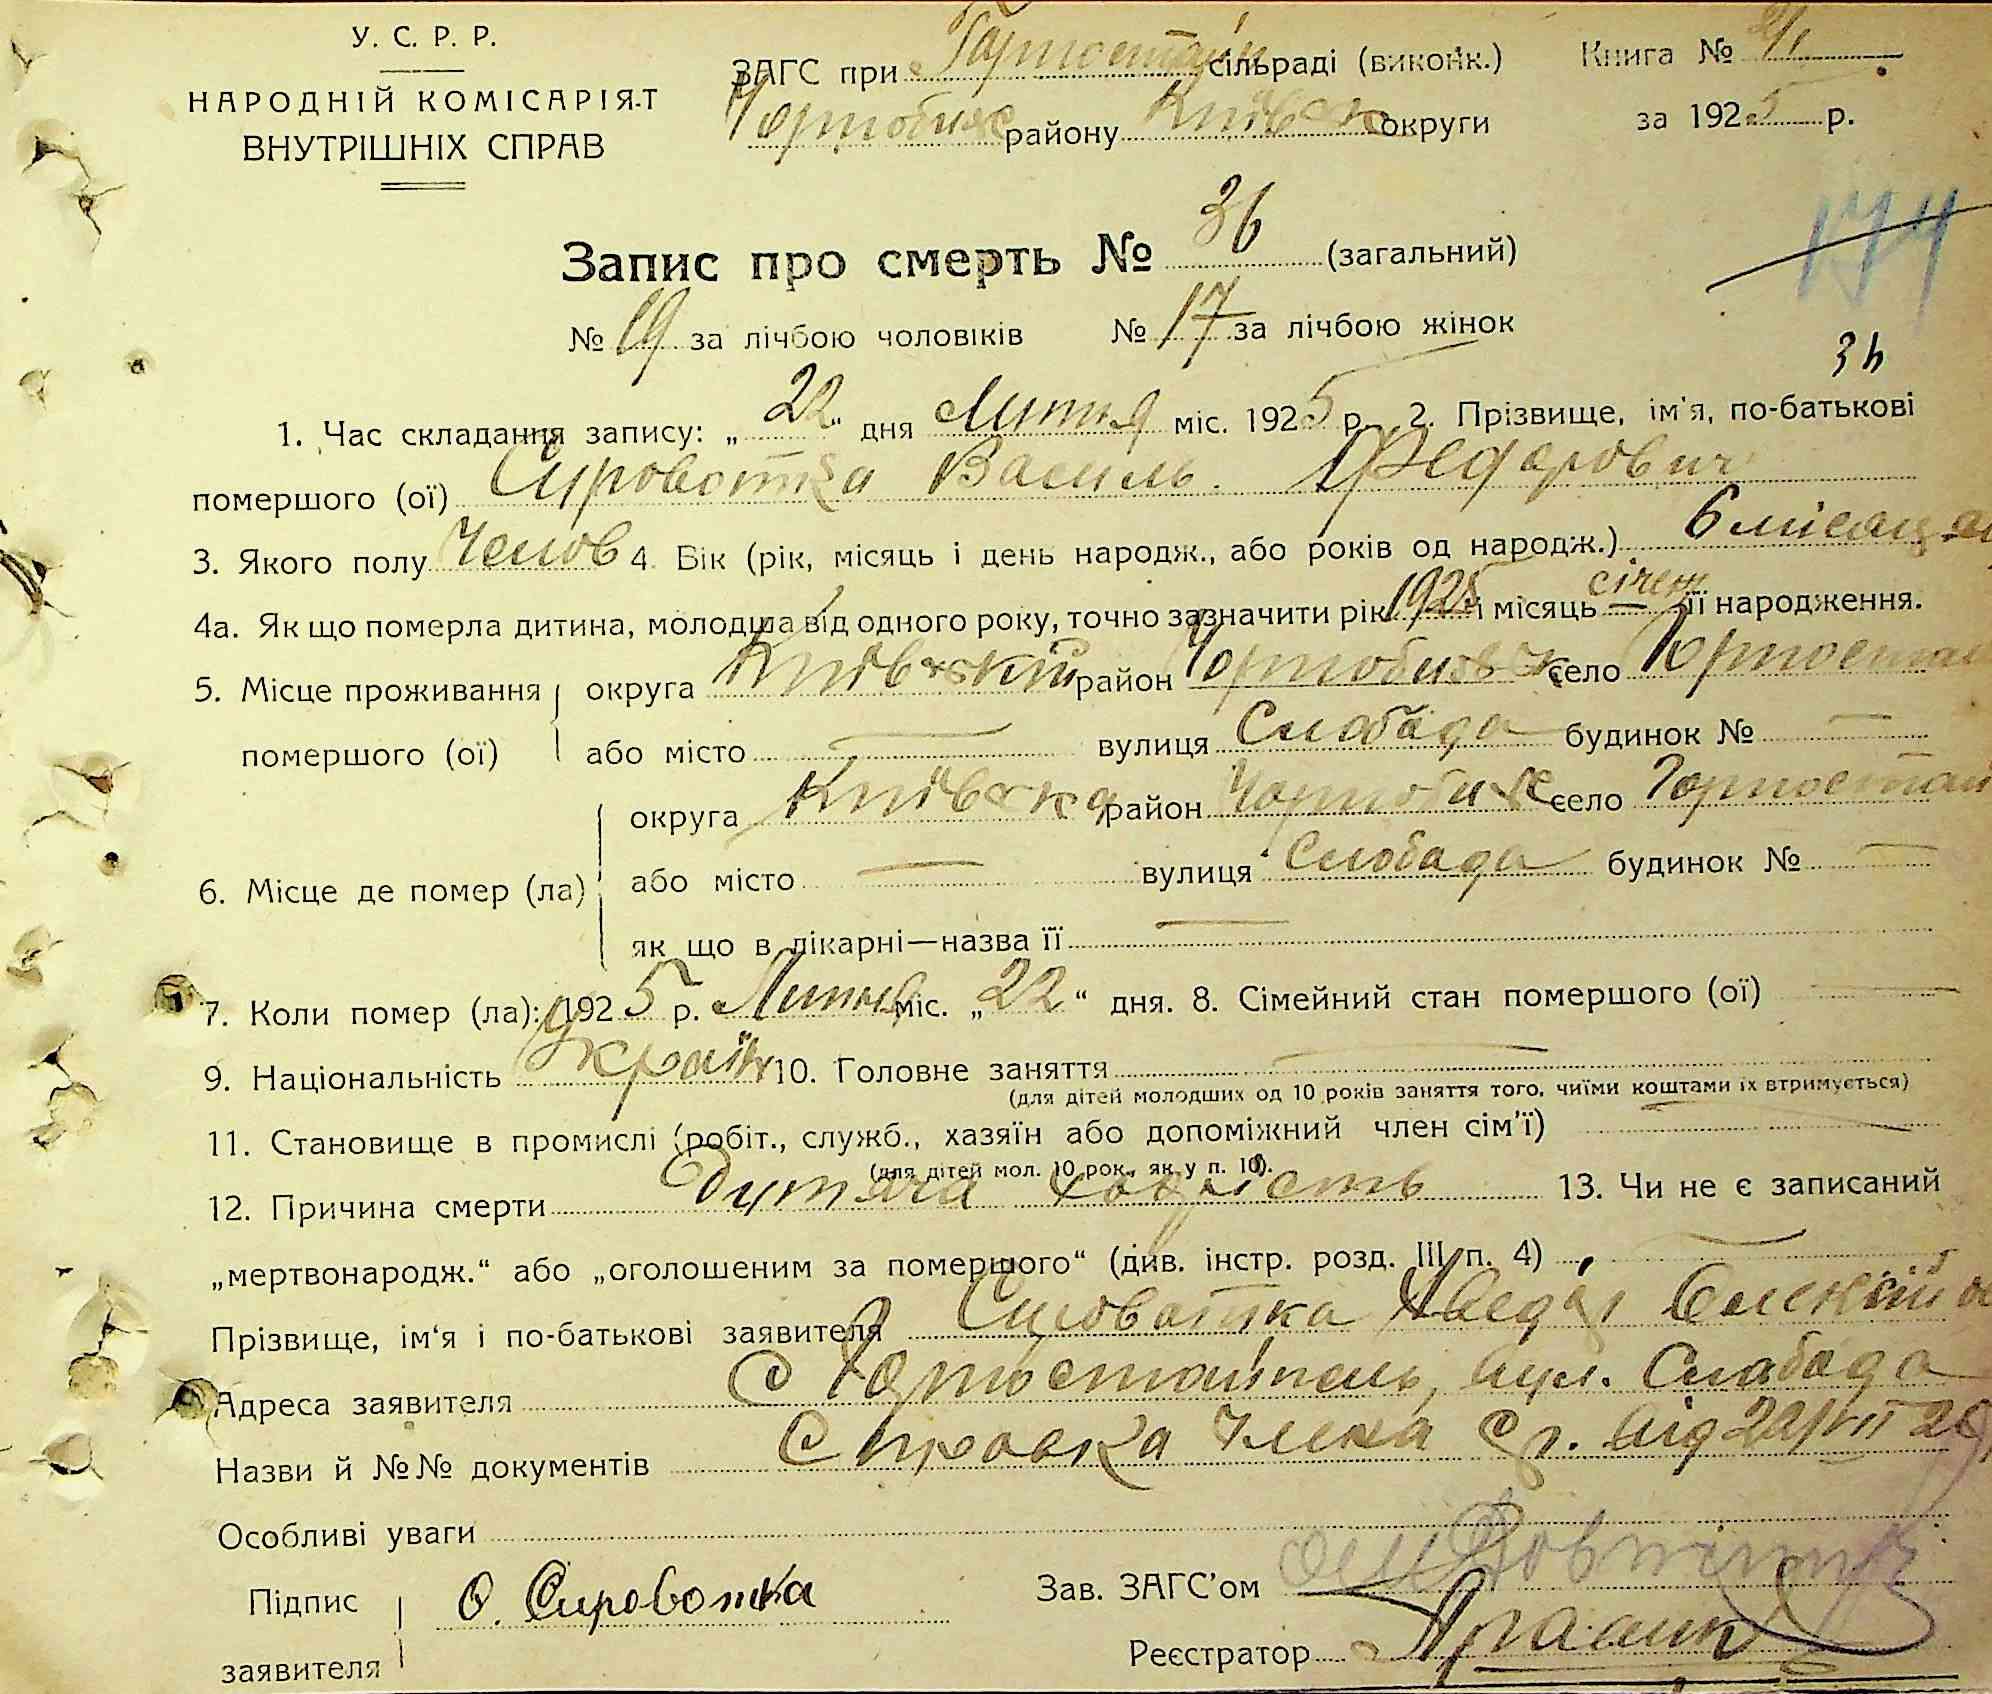 У. С. Р. Р.
НАРОДНІЙ КОМІСАРІЯТ
ВНУТРІШНІХ СПРАВ
ЗАГС при Горностай сільраді (виконк.)
Чорнобил району Київськ округи
Книга №
за 1925 р.
Запис про смерть № 36 (загальний)
174
№ 19 за лічбою чоловіків № 17 за лічбою жінок
1. Час складання запису: „22“ дня Липня міс. 1925 р. 2. Прізвище, ім'я, по-батькові
помершого (ої) Сыроватка Василь Федорович
3. Якого полу Челов 4. Вік (рік, місяць і день народж., або років од народж.) 6 місяц
4а. Як що померла дитина, молодша від одного року, точно зазначити рік 1925 і місяць січен її народження.
5. Місце проживання округа Київський район село Горностай
помершого (ої) або місто — вулиця Слобада будинок № —
округа Київска район село Горностай
6. Місце де помер (ла) або місто — вулиця Слобада будинок № —
як що в лікарні—назва її —
7. Коли помер (ла): 1925 р. Липня міс. „22“ дня. 8. Сімейний стан помершого (ої) —
9. Національність Україн 10. Головне заняття —
(для дітей молодших од 10 років заняття того, чиїми коштами їх втримується)
11. Становище в промислі (робіт., служб., хазяїн або допоміжний член сім'ї) —
(для дітей мол. 10 рок., як у п. 10).
12. Причина смерти 13. Чи не є записаний
„мертвонародж.“ або „оголошеним за помершого“ (див. інстр. розд. III п. 4) —
Прізвище, ім'я і по-батькові заявителя Сироватка
Адреса заявителя с Горностайпель, вул. Слабода
Назви й №№ документів Справка члена від 22/VII 25
Особливі уваги
Підпис О. Сироватка
заявителя
Зав. ЗАГС'ом
Реєстратор